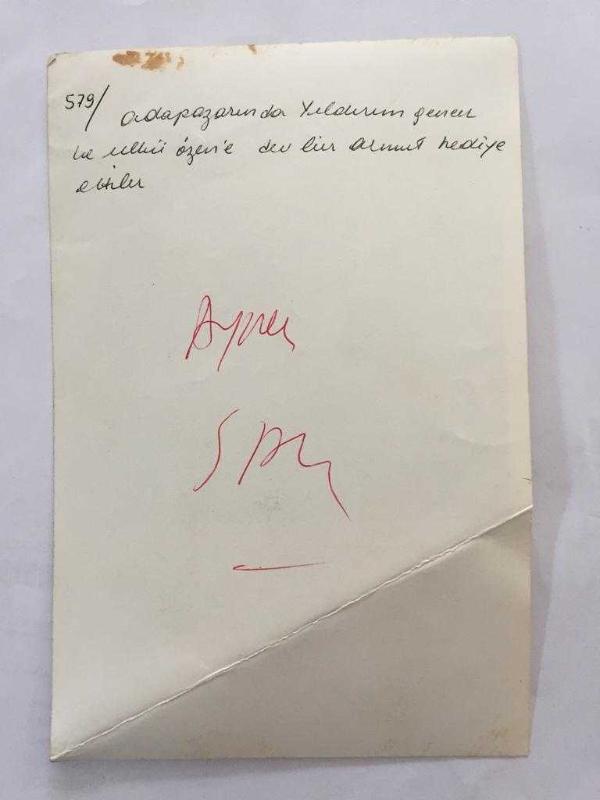 579/ Adapazarında Yıldırım gencer
ve ülkü özen'e dev bir armut hediye
ettiler